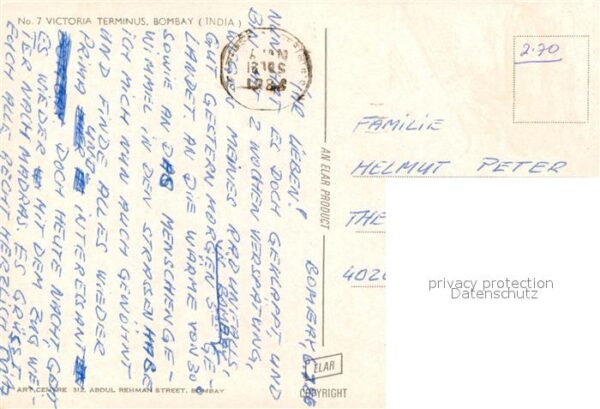 No. 7 VICTORIA TERMINUS, BOMBAY (INDIA)
BOMBAY,
IHR LIEBEN!
NUN HAT ES DOCH GEKLAPPT UND
2 WOCHEN VERSPÄTUNG,
WEGEN MEINES RADUNFALLS,
GUT GESTERN MORGEN IN BOMBAY GE-
LANDET. AN DIE WÄRME VON 30
SOWIE AN DAS MENSCHENGE-
WIMMEL IN DEN STRASSEN HABE
ICH MICH NUN AUCH GEWÖHNT
UND FINDE ALLES WIEDER
PRIMA UND INTERESSANT
DOCH HEUTE NACHT, GEHT
ES WIEDER MIT DEM ZUG WE-
TER NACH MADRAS. ES GRÜSST
EUCH ALLE RECHT HERZLICH
ART CENTRE 312, ABDUL REHMAN STREET, BOMBAY
AN ELAR PRODUCT
ELAR
COPYRIGHT
2.70
FAMILIE
HELMUT PETER
THE
402
privacy protection
Datenschutz